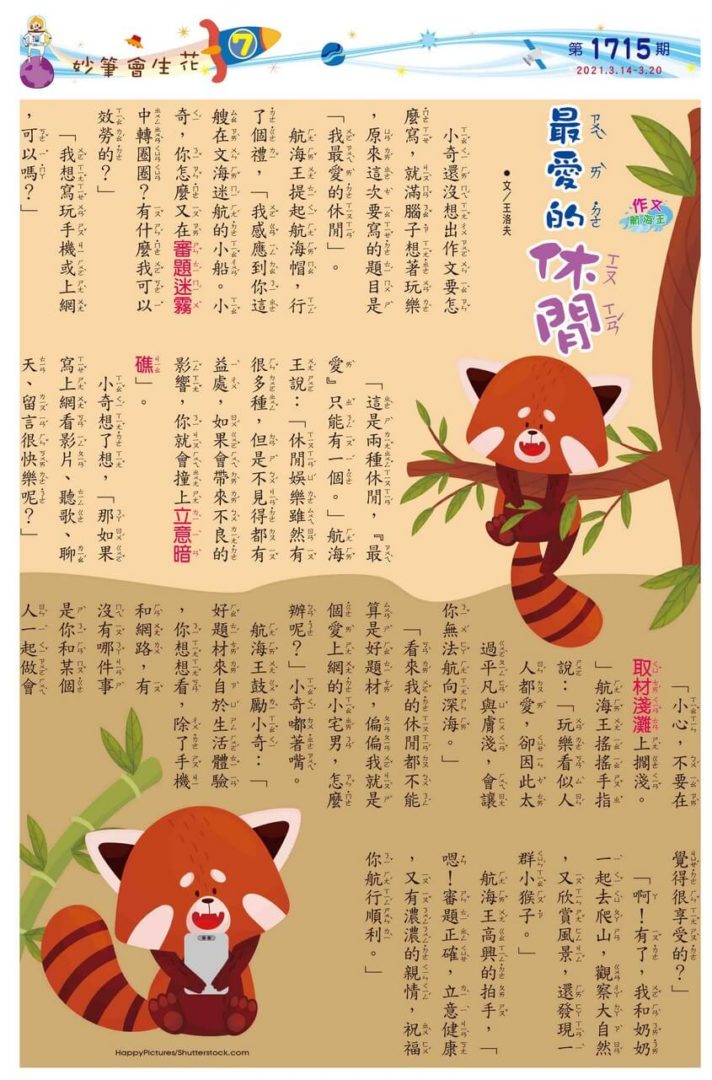 妙筆會生花
7
第1715期
2021.3.14-3.20
作文
航海王
最愛的
休閒
●文/王洛夫
小奇還沒想出作文要怎
麼寫,就滿腦子想著玩樂
,原來這次要寫的題目是
「我最愛的休閒」。
航海王提起航海帽,行
了個禮,「我感應到你這
艘在文海迷航的小船。小
奇,你怎麼又在審題迷霧
中轉圈圈?有什麼我可以
效勞的?」
「我想寫玩手機或上網
,可以嗎?」
「這是兩種休閒,『最
愛』只能有一個。」航海
王說:「休閒娛樂雖然有
很多種,但是不見得都有
益處,如果會帶來不良的
影響,你就會撞上立意暗
礁」。
小奇想了想,「那如果
寫上網看影片、聽歌、聊
天、留言很快樂呢?」
「小心,不要在
取材淺灘上擱淺。
」航海王搖搖手指
說:「玩樂看似人
人都愛,卻因此太
過平凡與膚淺,會讓
你無法航向深海。」
「看來我的休閒都不能
算是好題材,偏偏我就是
個愛上網的小宅男,怎麼
辦呢?」小奇嘟著嘴。
航海王鼓勵小奇:「
好題材來自於生活體驗
,你想想看,除了手機
和網路,有
沒有哪件事
是你和某個
人一起做會
覺得很享受的?」
「啊!有了,我和奶奶
一起去爬山,觀察大自然
,又欣賞風景,還發現一
群小猴子。」
航海王高興的拍手,「
嗯!審題正確,立意健康
,又有濃濃的親情,祝福
你航行順利。」
HappyPictures/Shutterstock.com